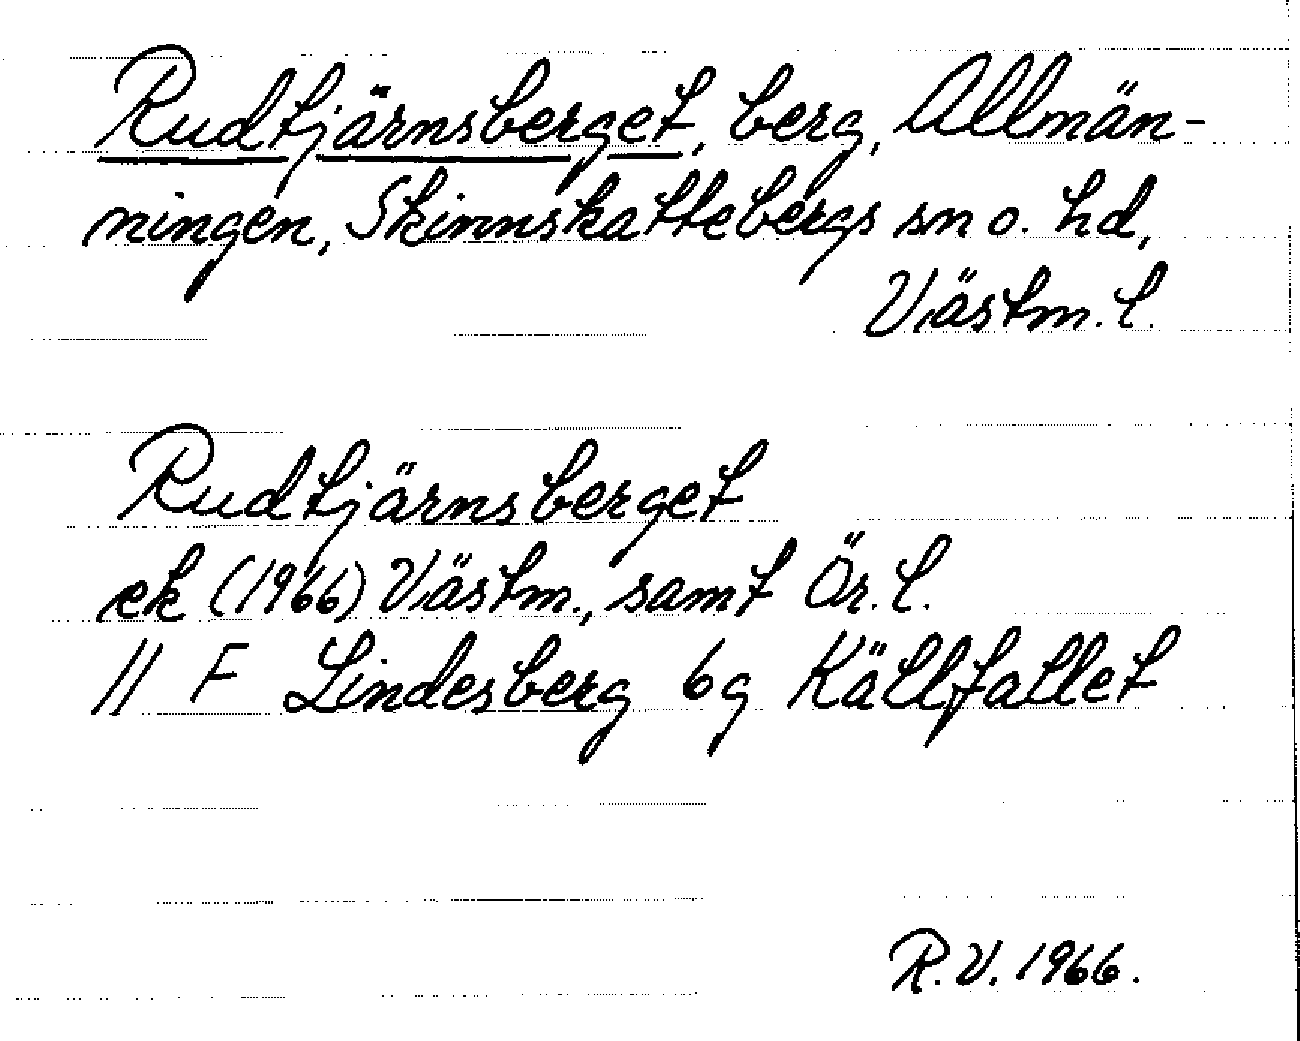 Rudtjärnsberget, berg, Allmän-
ningen, Skinnskattebergs sn o. hd,
Västm. l.
Rudtjärnsberget
ek (1966) Västm., samt Ör. l.
// F Lindesberg 6g Källfallet
R.V. 1966.